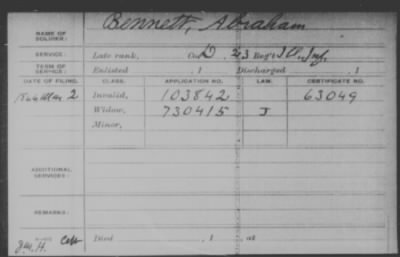 NAME OF SOLDIER: Bennett, Abraham
SERVICE: Late rank, Co. D, 23 Reg't Inf.
TERM OF SERVICE: Enlisted , 1 Discharged , 1
DATE OF FILING. CLASS. APPLICATION NO. LAW. CERTIFICATE NO.
2 Invalid, 103842 63049
Widow, 730415 J
Minor,
ADDITIONAL SERVICES:
REMARKS:
Died , 1 , at